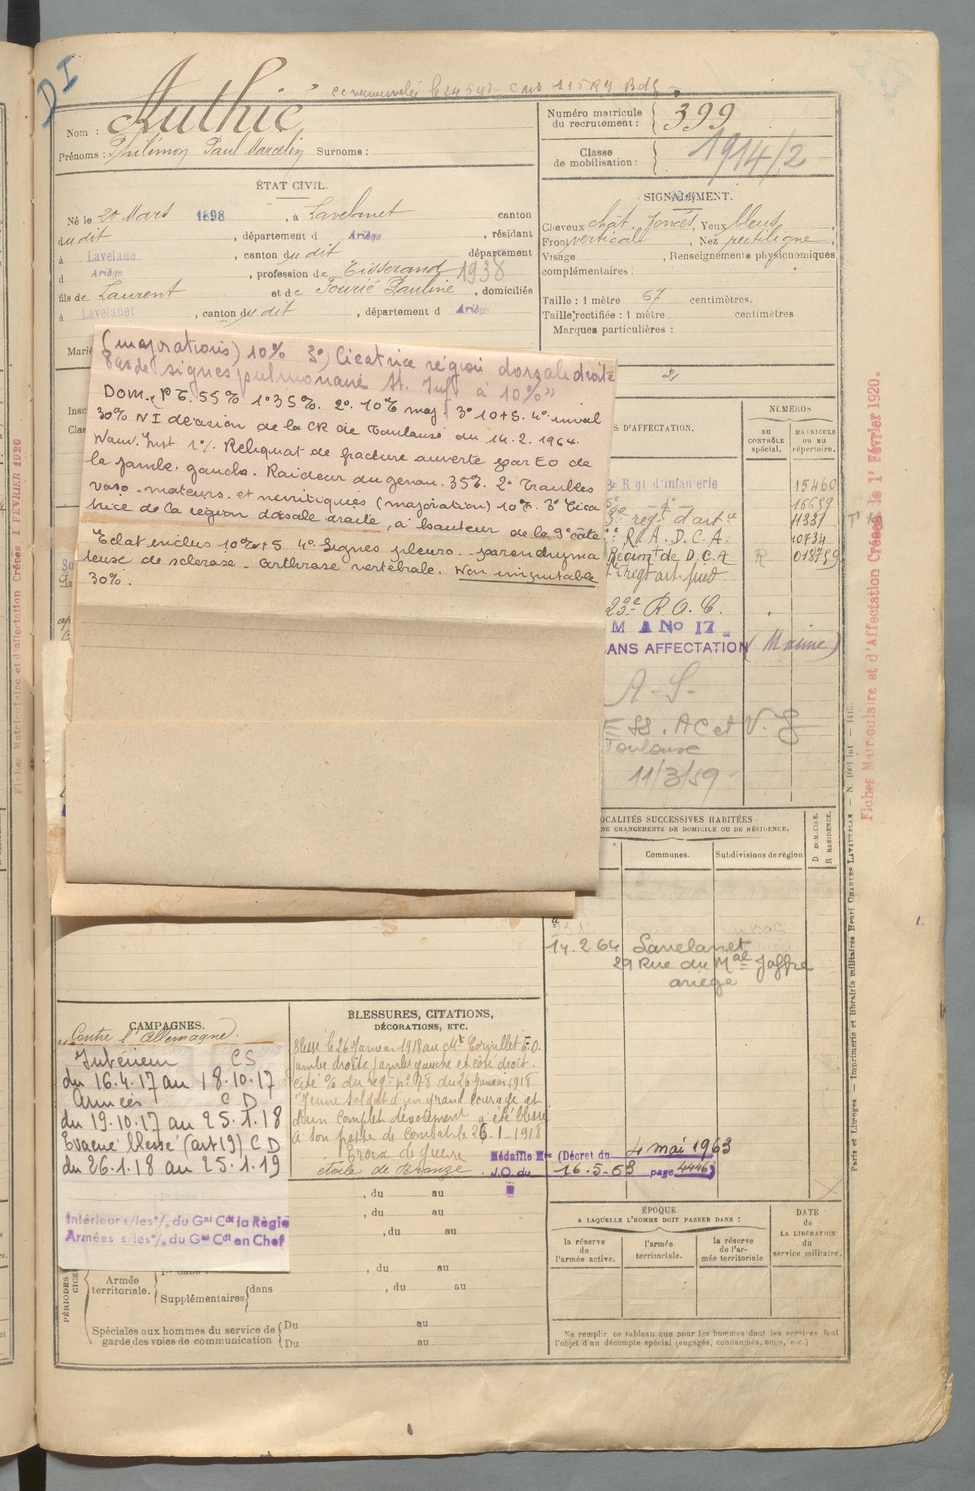 DI
Nom : Authié
Prénoms : Philémon Paul Marcelin Surnoms :
Numéro matricule du recrutement : 399
Classe de mobilisation : 1914/2
ÉTAT CIVIL.
Né le 20 Mars 1898, à Lavelanet canton
dudit, département d Ariège, résidant
à Lavelanet, canton dudit département
d Ariège, profession de Tisserand 1938
fils de Laurent et de Fourié Pauline, domiciliés
à Lavelanet, canton dudit, département d Ariège
SIGNALEMENT.
Cheveux chât. foncés, Yeux bleus,
Front vertical, Nez rectiligne,
Visage , Renseignements physionomiques
complémentaires :
Taille : 1 mètre 67 centimètres.
Taille rectifiée : 1 mètre centimètres
Marques particulières :
Marié
(majorations) 10% 3°) Cicatrice région dorsale droite
Pas de signes pulmonaire St. Inf à 10%"
Dom. P T. 55% 1° 35%. 2° 10% maj. 3° 10+5. 4° inval
30% NI décision de la CR de Toulouse du 14.2.1964.
1°/. Reliquat de fracture ouverte par EO de
la jambe. gauche. Raideur du genou. 35%. 2° Troubles
vaso-moteurs. et nevritiques (majoration) 10%. 3° Cica
trice de la région dorsale droite, à hauteur de la 9° côte
Eclat inclus 10%+5 4° Signes pleuro-parenchyma
teux de sclerose. arthrose vertébrale. Non imputable
30%.
S D'AFFECTATION.
NUMÉROS
AU CONTRÔLE spécial.
MATRICULE OU AU répertoire.
Rgt d'infanterie 15460
16659
rég. d'art 11331
R. A. D. C. A. 10734
de D. C. A R 018759
23e R.O.C.
M A No 17
SANS AFFECTATION
A-S-
SS. AC et V. G
Toulouse
11/3/59
LOCALITÉS SUCCESSIVES HABITÉES
DE CHANGEMENTS DE DOMICILE OU DE RÉSIDENCE.
Communes.
Subdivisions de région
D DOMICILE.
R RÉSIDENCE.
14.2.64 Lavelanet
29 Rue du Mal Joffre
ariège
CAMPAGNES.
Contre l'Allemagne.
Intérieur CS
du 16.4.17 au 18.10.17
Armées C D
du 19.10.17 au 25.1.18
Evacué blessé (art 19) C D
du 26.1.18 au 25.1.19
Intérieur s/les %. du Gal Cdt la Règie
Armées s/les %. du Gal Cdt en Chef
BLESSURES, CITATIONS,
DÉCORATIONS, ETC.
Blessé le 26 Janvier 1918 au Mt Cornillet E.O.
jambe droite jambe gauche et côté droit.
Cité % du régt n° 78 du 26 Janvier 1918
"Jeune soldat d'un grand courage et
d'un complet dévouement a été blessé
à son poste de combat le 26-1-1918
Croix de Guerre
étoile de bronze
Médaille Mre (Décret du 4 mai 1963
J.O. du 16-5-63 page 4446)
, du au
, du au
, du au
, du au
, du au
Armée territoriale.
Supplémentaires dans
Spéciales aux hommes du service de garde des voies de communication
Du au
Du au
ÉPOQUE
A LAQUELLE L'HOMME DOIT PASSER DANS :
la réserve de l'armée active.
l'armée territoriale.
la réserve de l'armée territoriale
DATE de LA LIBÉRATION du service militaire.
Ne remplir ce tableau que pour les hommes dont les services font
l'objet d'un décompte spécial (engagés, condamnés, omis, etc.)
Paris et Limoges — Imprimerie et librairie militaires Henri CHARLES-LAVAUZELLE
Fiches Matriculaire et d'Affectation Créées le 1er Février 1920.
Fiches Matriculaire et d'affectation Créées 1 FÉVRIER 1920